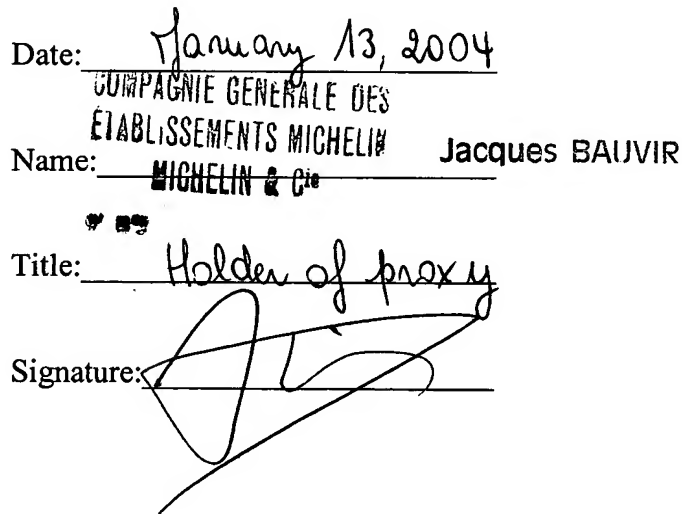 Date: January 13, 2004
COMPAGNIE GENERALE DES
ETABLISSEMENTS MICHELIN
Name: Jacques BAUVIR
MICHELIN & Cie
Title: Holder of proxy
Signature: